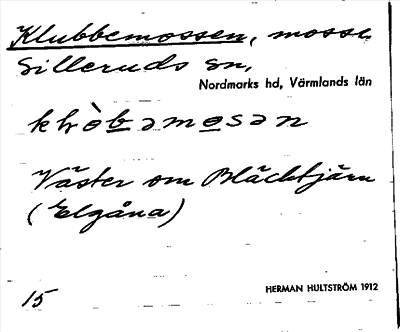 Klubbemossen, mosse
Silleruds sn,
Nordmarks hd, Värmlands län
Väster om Bläcktjärn
(Elgåna)
15 HERMAN HULTSTRÖM 1912